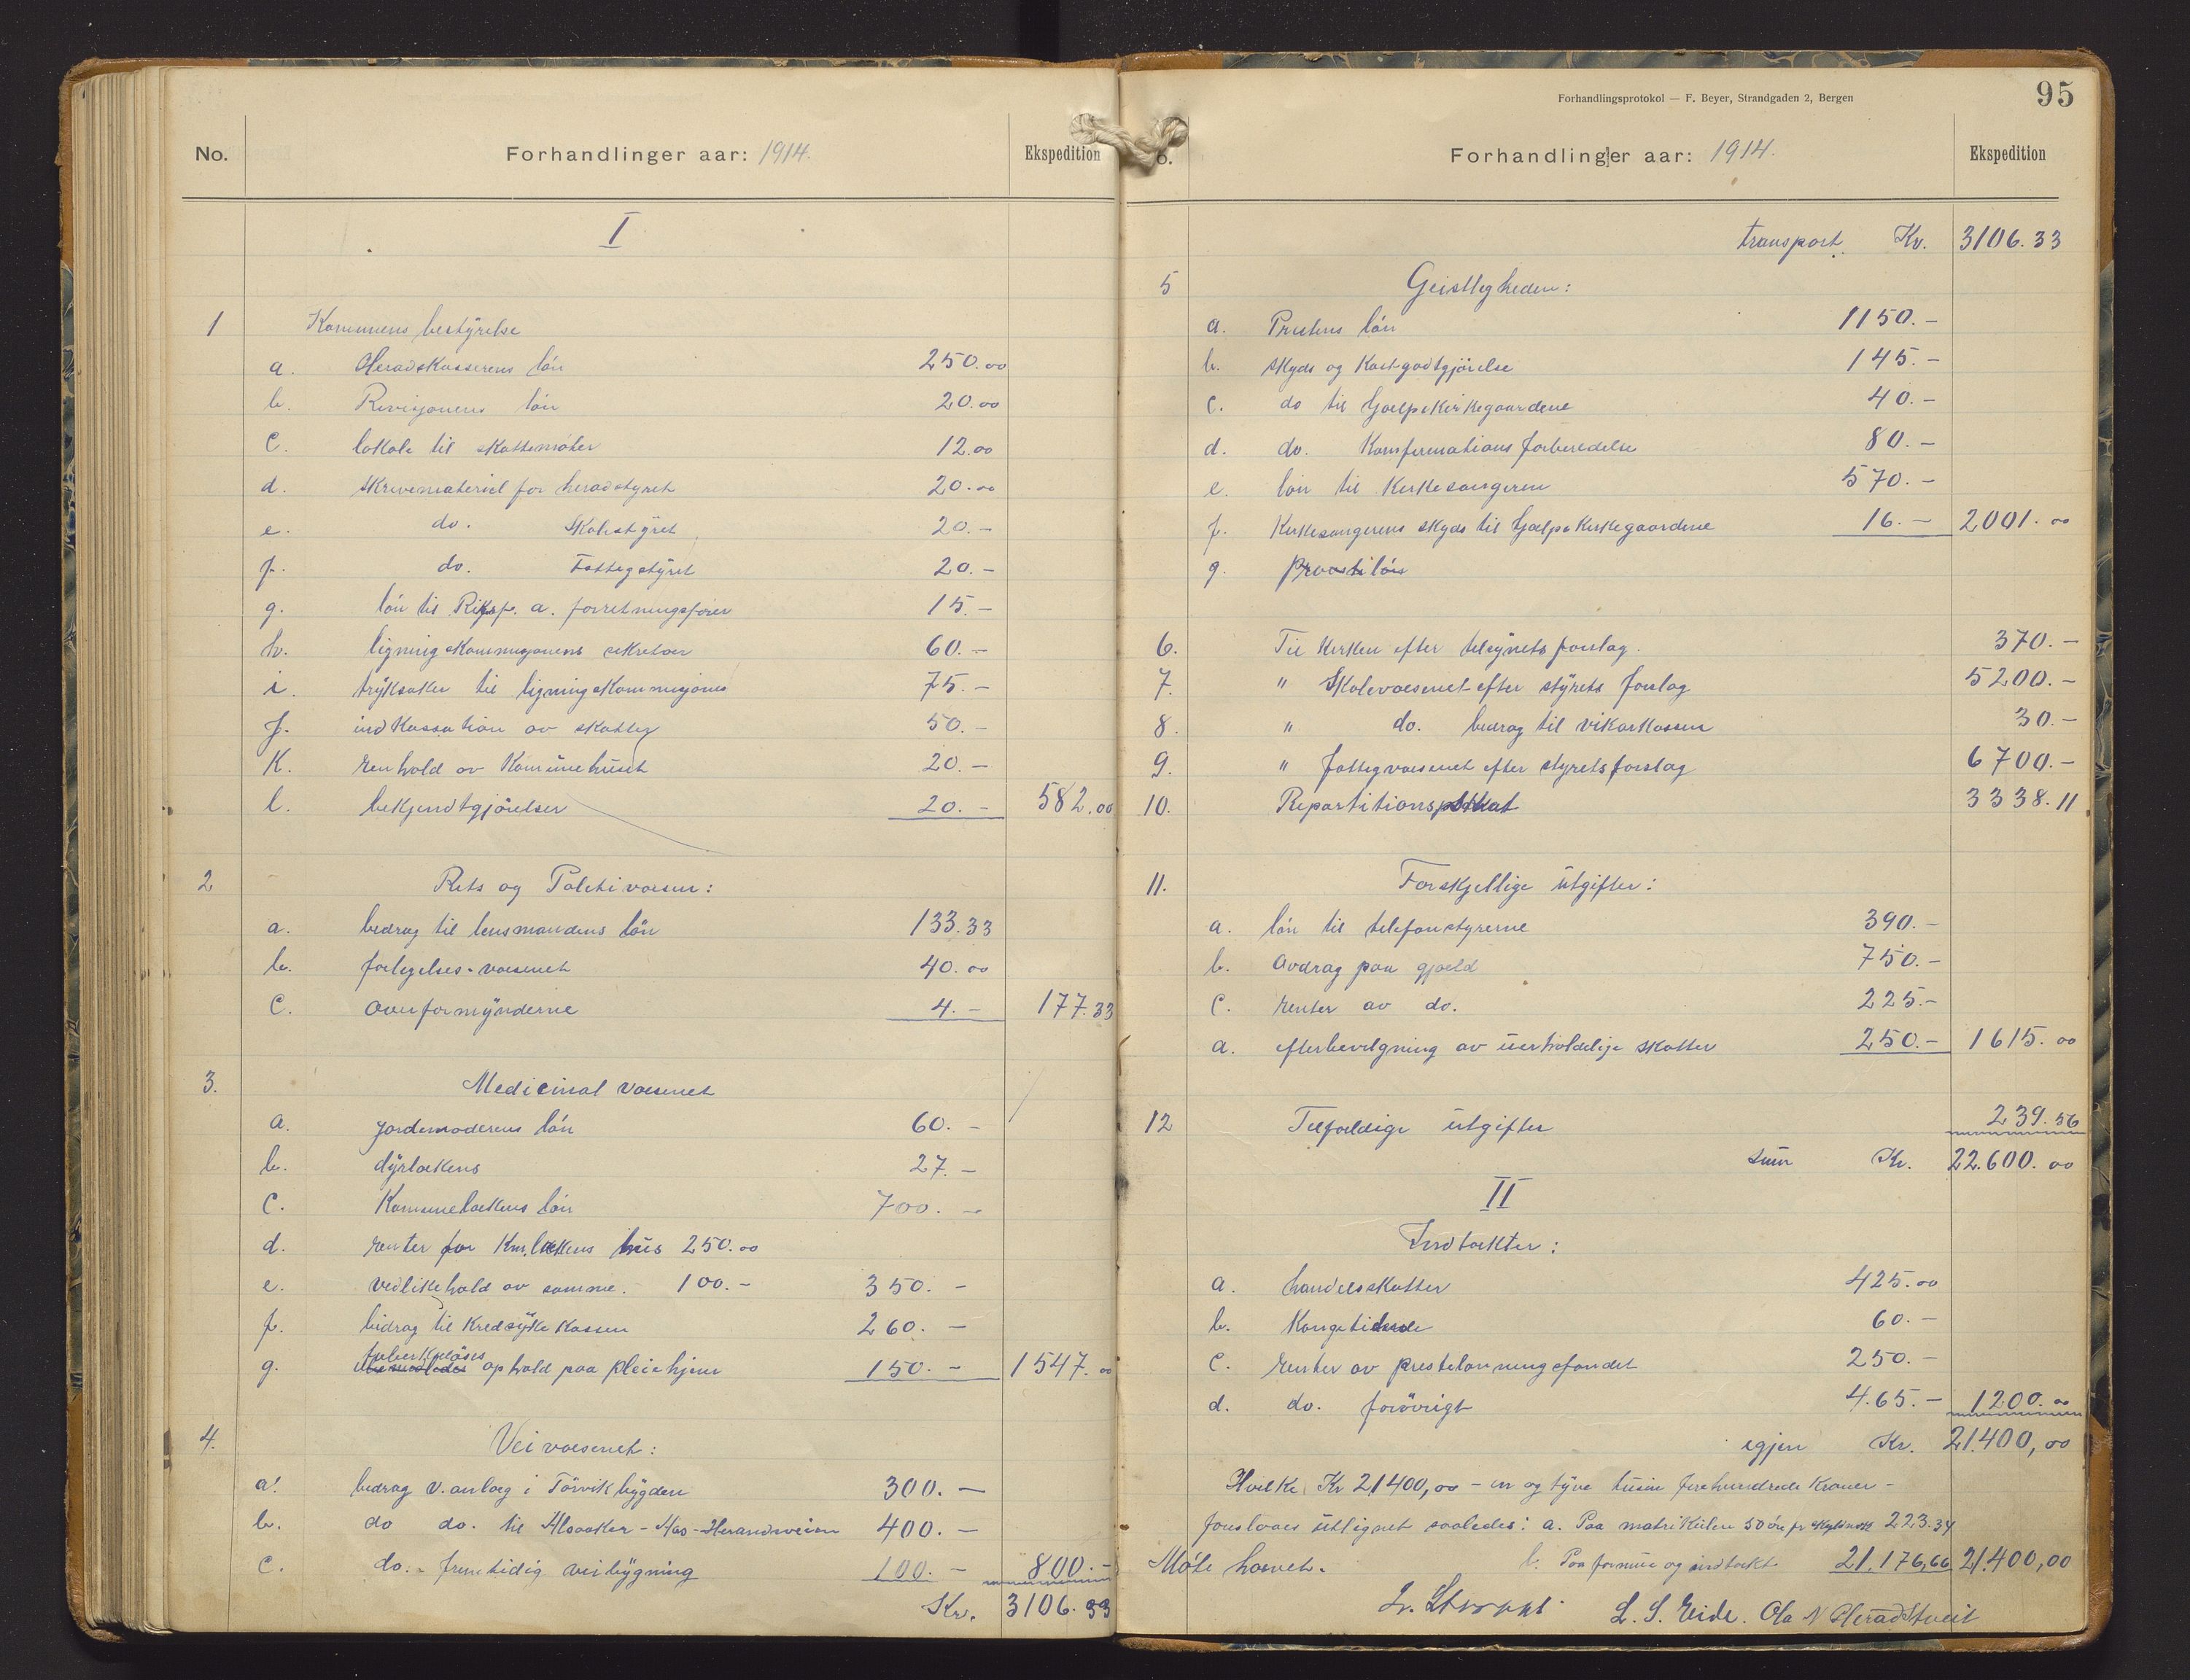 No. Forhandlinger aar: 1914. Ekspedition
I
1 Kommuens bestyrelse
a. Heradskasserens løn 250.00
b. Revisjonens løn 20.00
c. lokale til skattemøter 12.00
d. skrivemateriel for heradstyret 20.00
e. do. Skolestyret 20.-
f. do. Fattigstyret 20.-
g. løn til Riksf. a. forretningsfører 15.-
h. ligningskommisjonens sekretær 60.-
i. tryksaker til ligningskommisjonen 75.-
j. indkassation av skatter 50.-
k. renhold av Komunehuset 20.-
l. bekjendtgjørelser 20.- 582.00
2 Rets og Politivæsen:
a. bedrag til lensmandens løn 133.33
b. forligelses-væsenet 40.00
c. overformynderne 4.- 177.33
3. Medicinal væsenet
a. jordemoderens løn 60.-
b. dyrlækens 27.-
c. Komunelækens løn 700.-
d. renter for Km.lækens hus 250.00
e. vedlikehold av samme. 100.- 350.-
f. bidrag til Kredsykekassen 260.-
g. tuberkuløses ophold paa pleiehjem 150.- 1547.00
4. Veivæsenet:
a. bedrag v.anlæg i Torvikbygden 300.-
b. do do. til Alsaaker-Aas-Herandsveien 400.-
c. do. - fremtidig veibygning 100.- 800.-
Kr. 3106.33
Forhandlingsprotokol — F. Beyer, Strandgaden 2, Bergen
95
o. Forhandlinger aar: 1914. Ekspedition
transport. Kr. 3106.33
5 Geistligheden:
a. Prestens løn 1150.-
b. skyds og Kostgodtgjørelse 145.-
c. do til hjælpekirkegaardene 40.-
d. do. Konfirmations forberedelse 80.-
e. løn til Kirkesangeren 570.-
f. Kirkesangerens skyds til hjælpekirkegaardene 16.- 2001.00
g. Prostiløn
6. Til kirken efter tilsynets forslag. 370.-
7. " Skolevæsenet efter styrets forslag 5200.-
8. " do. bedrag til vikarkassen 30.-
9. " fattigvæsenet efter styrets forslag 6700.-
10. Repartitionsskat 3338.11
11. Forskjellige utgifter:
a. løn til telefonstyrerne 390.-
b. avdrag paa gjæld 750.-
c. renter av do. 225.-
d. efterbevilgning av uerholdelige skatter 250.- 1615.00
12 Tilfældige utgifter 239.56
sum Kr. 22.600.00
II
Indtækter:
a. handelsskatter 425.00
b. Kongetiende 60.-
c. renter av prestelønningsfondet 250.-
d. do. forøvrigt 465.- 1200.00
egjen Kr. 21.400,00
Hvilke Kr 21400,00 - en og tyve tusin firehundrede kroner -
foreslaaes utlignet saaledes: a. Paa matrikulen 50 øre pr skyldmark 223.34
Møte hævet. b. Paa formue og indtækt 21.176,66 21.400,00
L. S. Eide. Ola N Heradstveit